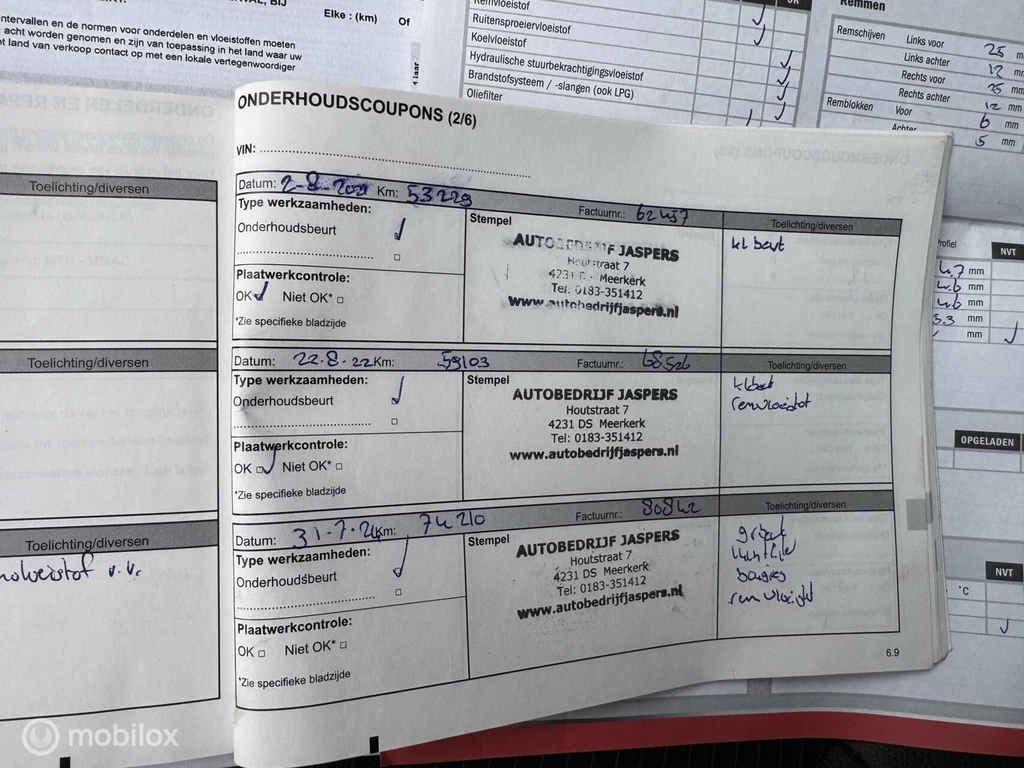 Elke : (km) Of
ntervallen en de normen voor onderdelen en vloeistoffen moeten
acht worden genomen en zijn van toepassing in het land waar uw
t land van verkoop contact op met een lokale vertegenwoordiger
1 jaar
Remvloeistof
Ruitensproeiervloeistof
Koelvloeistof
Hydraulische stuurbekrachtigingsvloeistof
Brandstofsysteem / -slangen (ook LPG)
Oliefilter
Remmen
Remschijven Links voor 25 mm
Links achter 12 mm
Rechts voor 25 mm
Rechts achter 12 mm
Remblokken Voor 6 mm
Achter 5 mm
Profiel NVT
4.7 mm
4.6 mm
4.6 mm
5.3 mm
mm
OPGELADEN
NVT
°C
Toelichting/diversen
Toelichting/diversen
Toelichting/diversen
v.v.
ONDERHOUDSCOUPONS (2/6)
VIN:
Datum: 2-8-2021 Km: 53229 Factuurnr.: 62457 Toelichting/diversen
Type werkzaamheden:
Onderhoudsbeurt
Plaatwerkcontrole:
OK Niet OK*
*Zie specifieke bladzijde
Stempel
AUTOBEDRIJF JASPERS
Houtstraat 7
4231 DS Meerkerk
Tel: 0183-351412
www.autobedrijfjaspers.nl
kl beurt
Datum: 22-8-22 Km: 59103 Factuurnr.: 68526 Toelichting/diversen
Type werkzaamheden:
Onderhoudsbeurt
Plaatwerkcontrole:
OK Niet OK*
*Zie specifieke bladzijde
Stempel
AUTOBEDRIJF JASPERS
Houtstraat 7
4231 DS Meerkerk
Tel: 0183-351412
www.autobedrijfjaspers.nl
kl beurt
remvloeistof
Datum: 31-7-24 Km: 74210 Factuurnr.: 80842 Toelichting/diversen
Type werkzaamheden:
Onderhoudsbeurt
Plaatwerkcontrole:
OK Niet OK*
*Zie specifieke bladzijde
Stempel
AUTOBEDRIJF JASPERS
Houtstraat 7
4231 DS Meerkerk
Tel: 0183-351412
www.autobedrijfjaspers.nl
gr beurt
bougies
remvloeistof
6.9
mobilox